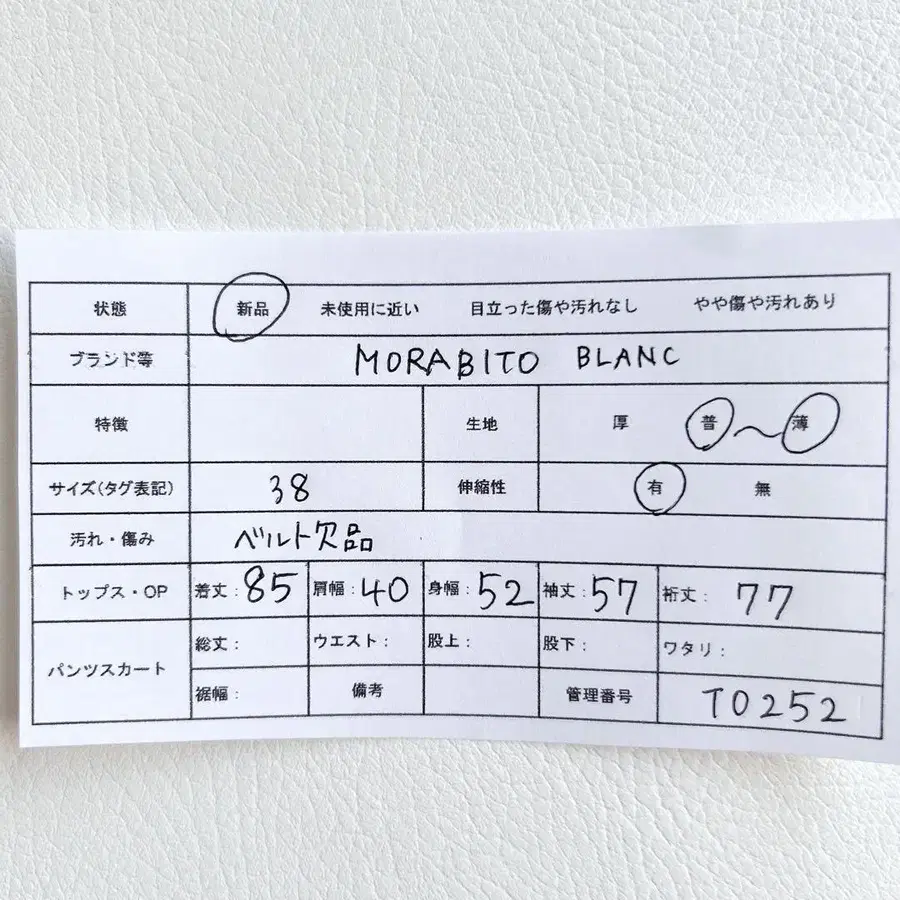 状態 新品 未使用に近い 目立った傷や汚れなし やや傷や汚れあり
ブランド等 MORABITO BLANC
特徴 生地 厚 普〜薄
サイズ(タグ表記) 38 伸縮性 有 無
汚れ・傷み ベルト欠品
トップス・OP 着丈:85 肩幅:40 身幅:52 袖丈:57 裄丈:77
パンツスカート 総丈: ウエスト: 股上: 股下: ワタリ:
裾幅: 備考 管理番号 T0252